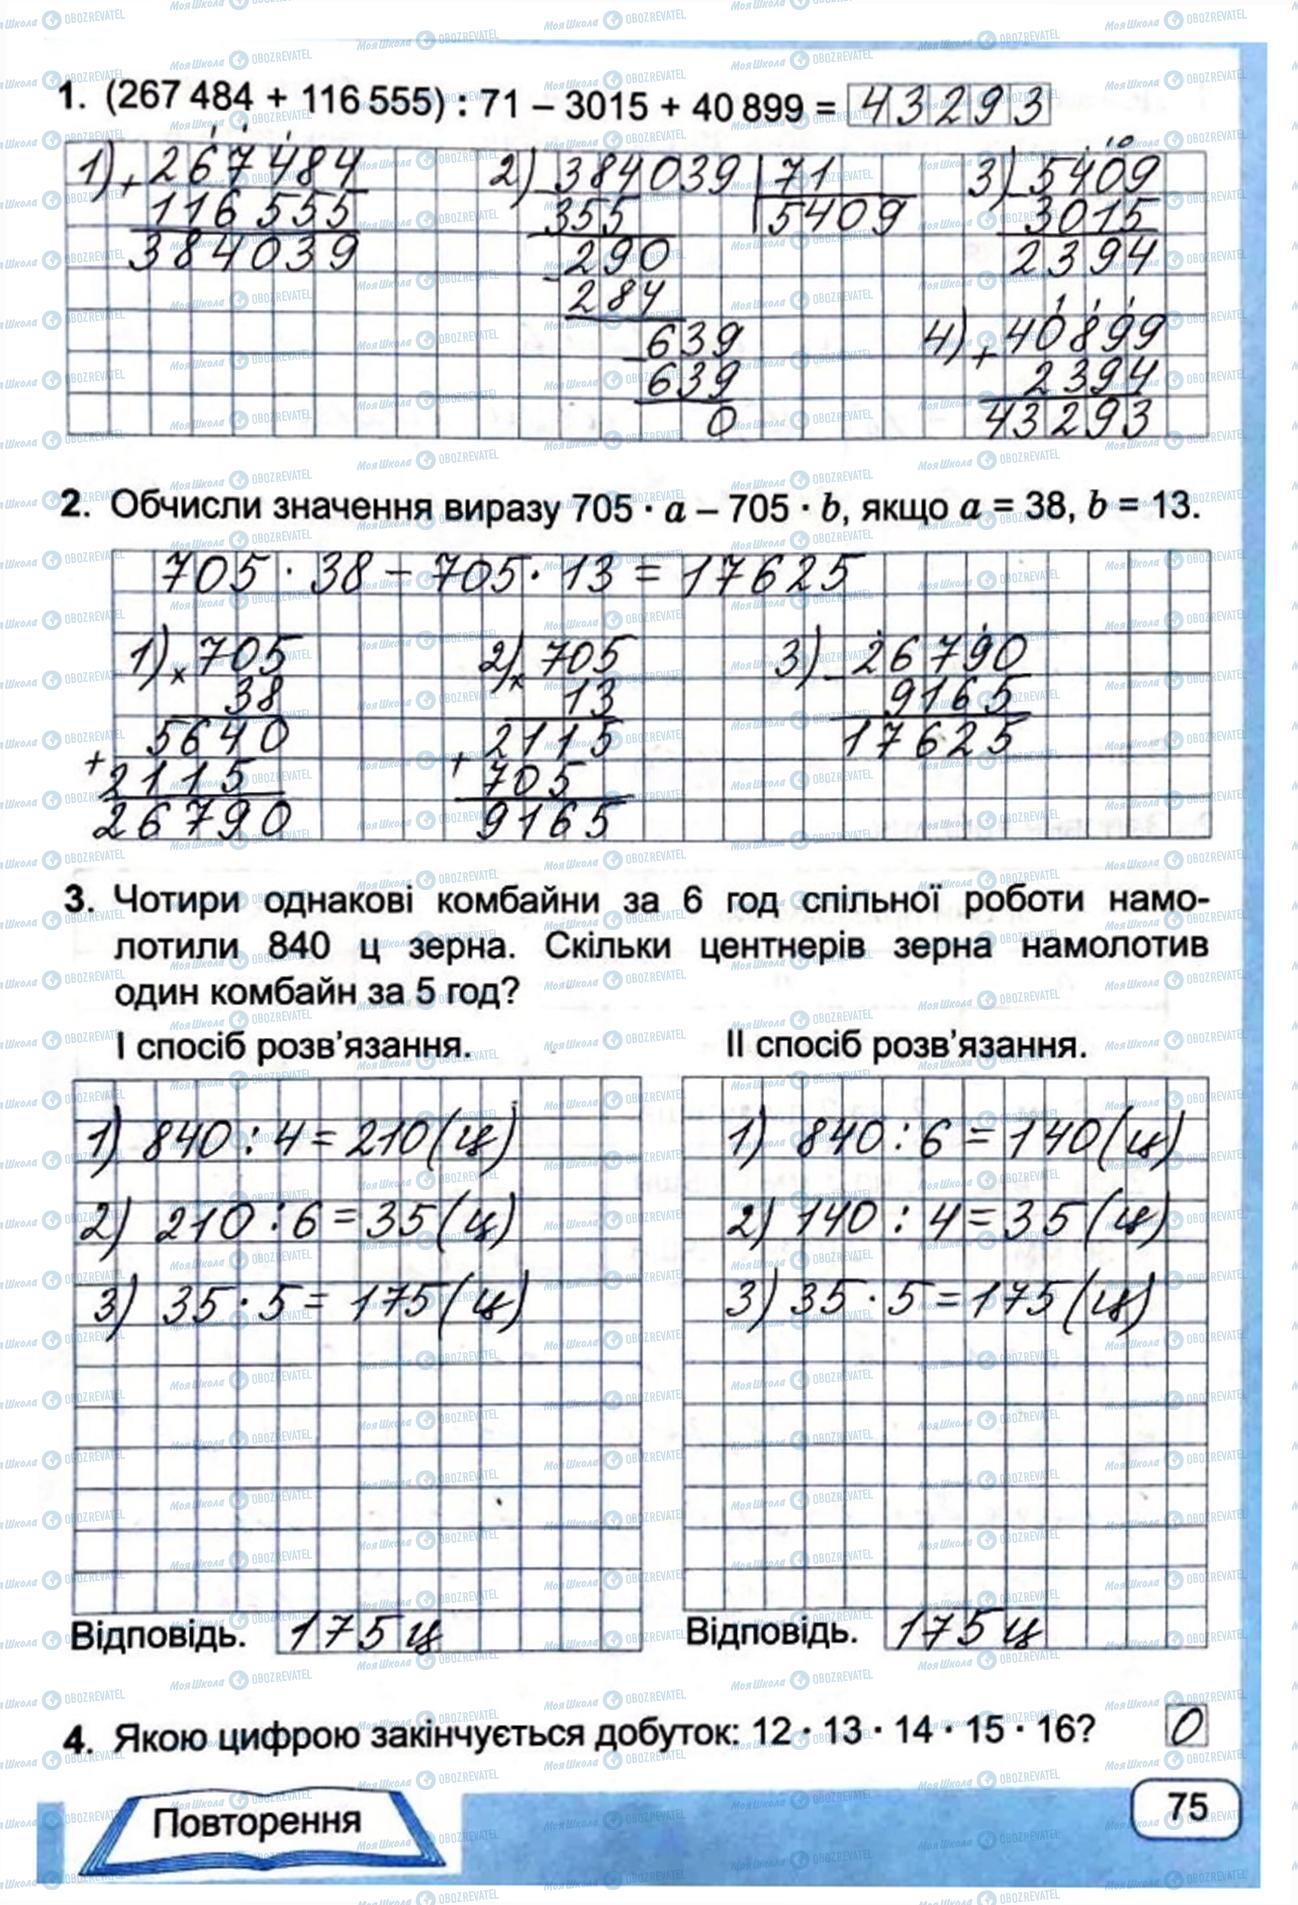 1. (267 484 + 116 555) : 71 – 3015 + 40 899 = 43293
1) + 267484
116555
384039
2) – 384039 | 71
355 | 5409
290
– 284
639
– 639
0
3) 5409
3015
2394
4) + 40899
2394
43293
2. Обчисли значення виразу 705 · a – 705 · b, якщо a = 38, b = 13.
705 · 38 – 705 · 13 = 17625
1) × 705
38
+ 5640
2115
26790
2) × 705
13
+ 2115
705
9165
3) – 26790
9165
17625
3. Чотири однакові комбайни за 6 год спільної роботи намо-
лотили 840 ц зерна. Скільки центнерів зерна намолотив
один комбайн за 5 год?
І спосіб розв’язання.
1) 840 : 4 = 210 (ц)
2) 210 : 6 = 35 (ц)
3) 35 · 5 = 175 (ц)
Відповідь. 175 ц
ІІ спосіб розв’язання.
1) 840 : 6 = 140 (ц)
2) 140 : 4 = 35 (ц)
3) 35 · 5 = 175 (ц)
Відповідь. 175 ц
4. Якою цифрою закінчується добуток: 12 · 13 · 14 · 15 · 16? 0
Повторення
75
МояШкола OBOZREVATEL